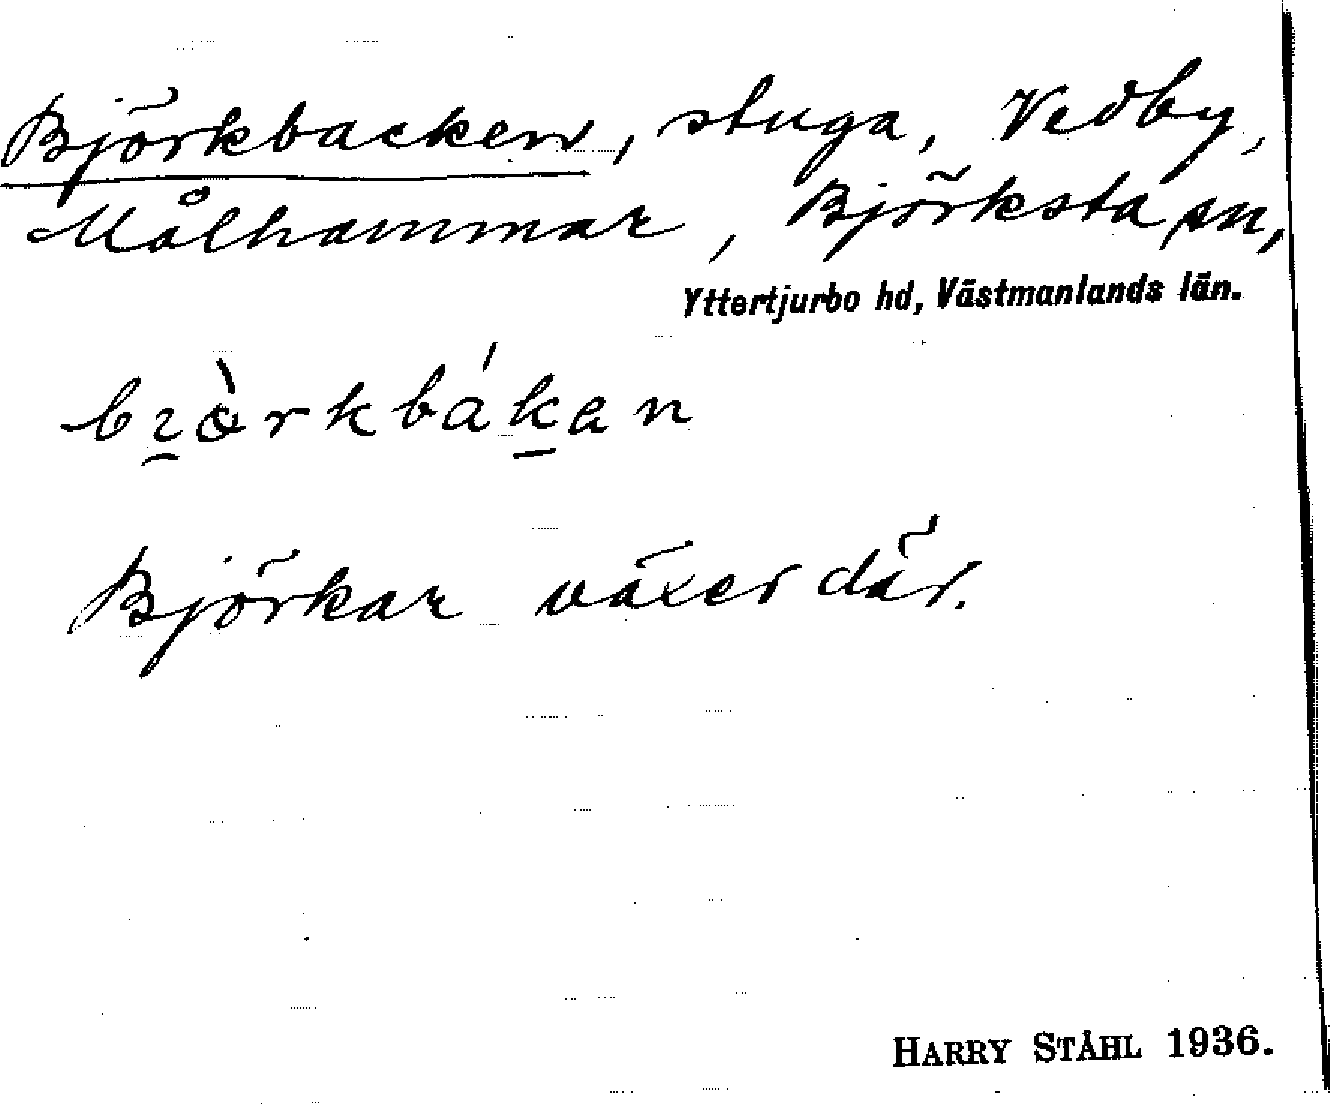 Björkbacken, stuga, Vedby,
Målhammar, Björksta sn,
Yttertjurbo hd, Västmanlands län.
bi̯ɷ̀rkbák̠an
Björkar växer där.
HARRY STÅHL 1936.